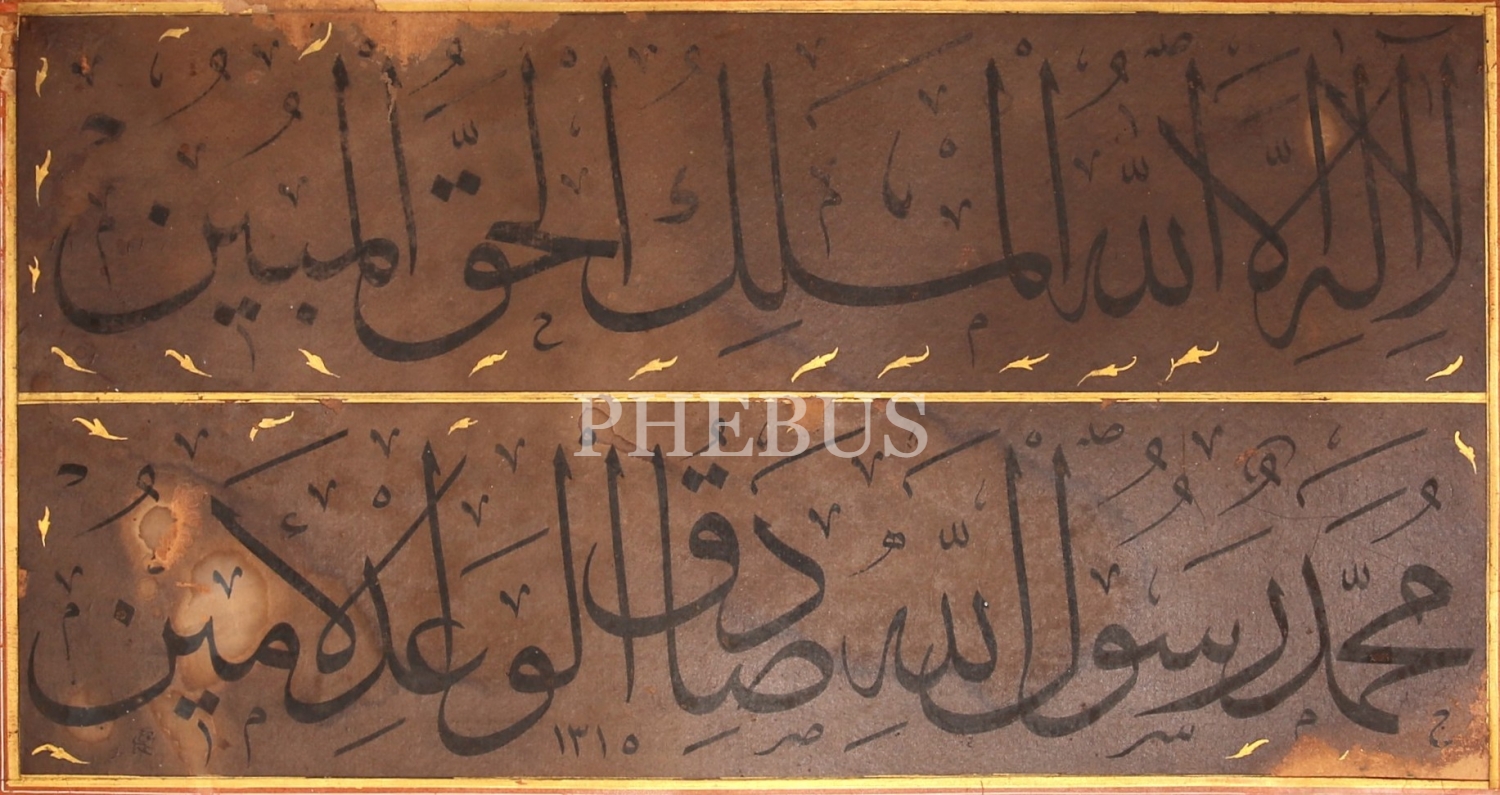 لَا إِلَٰهَ إِلَّا اللَّهُ الْمَلِكُ الْحَقُّ الْمُبِينُ
PHEBUS
مُحَمَّدٌ رَسُولُ اللَّهِ صَادِقُ الْوَعْدِ الْأَمِينُ
١٣١٥